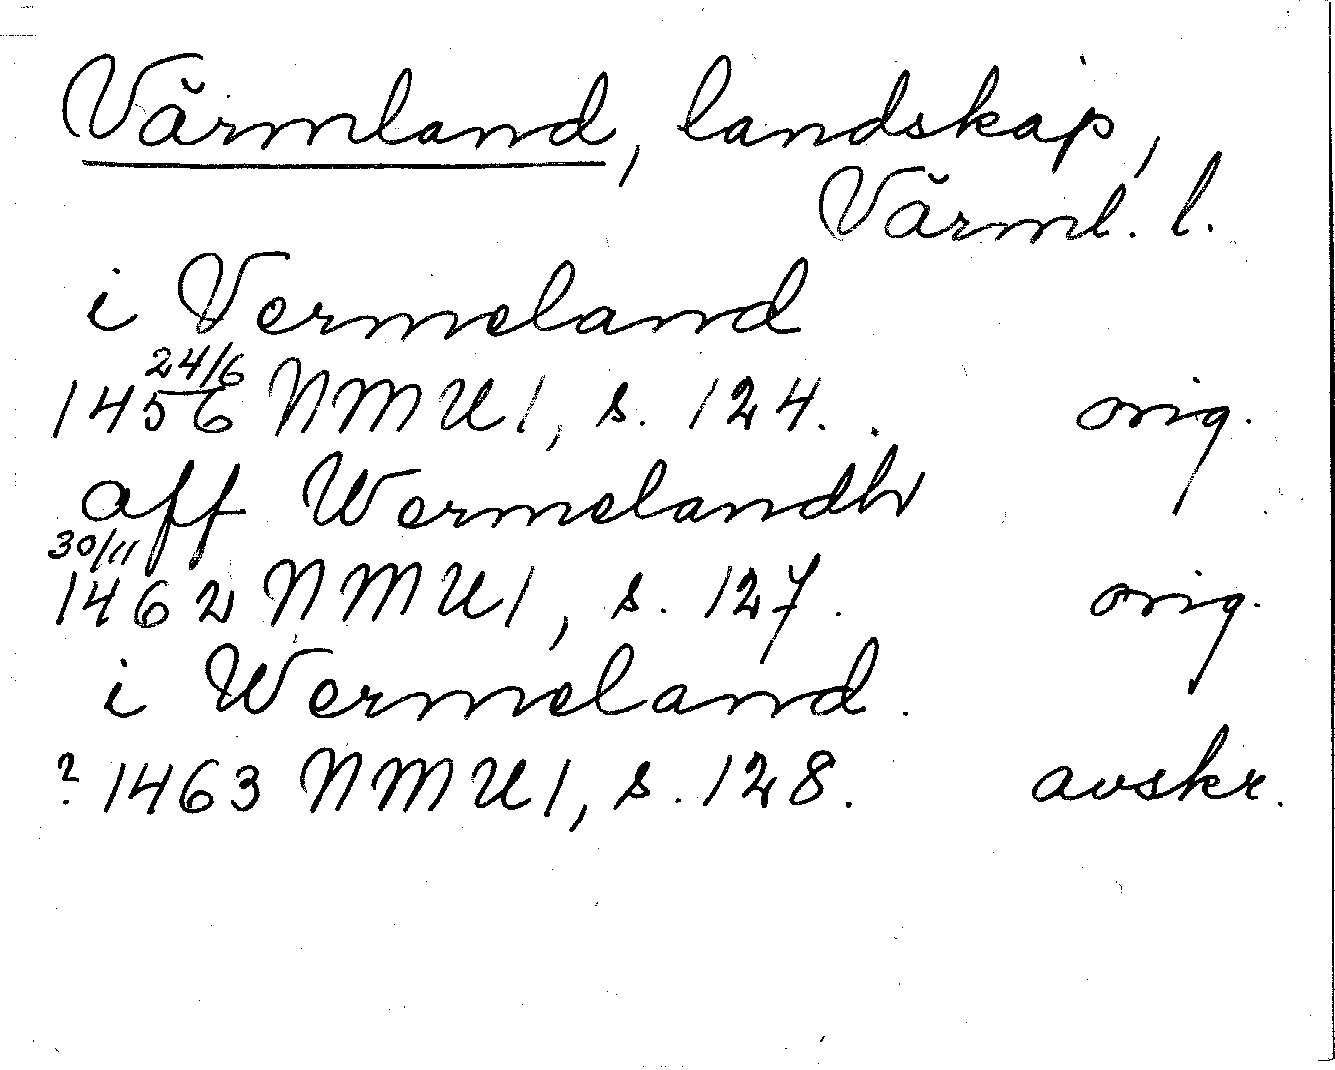 Värmland, landskap,
Värml. l.
i Vermeland
24/6
1456 NMU1, s. 124. orig.
aff Wermelandh
30/11
1462 NMU1, s. 127. orig.
i Wermeland.
? 1463 NMU1, s. 128. avskr.